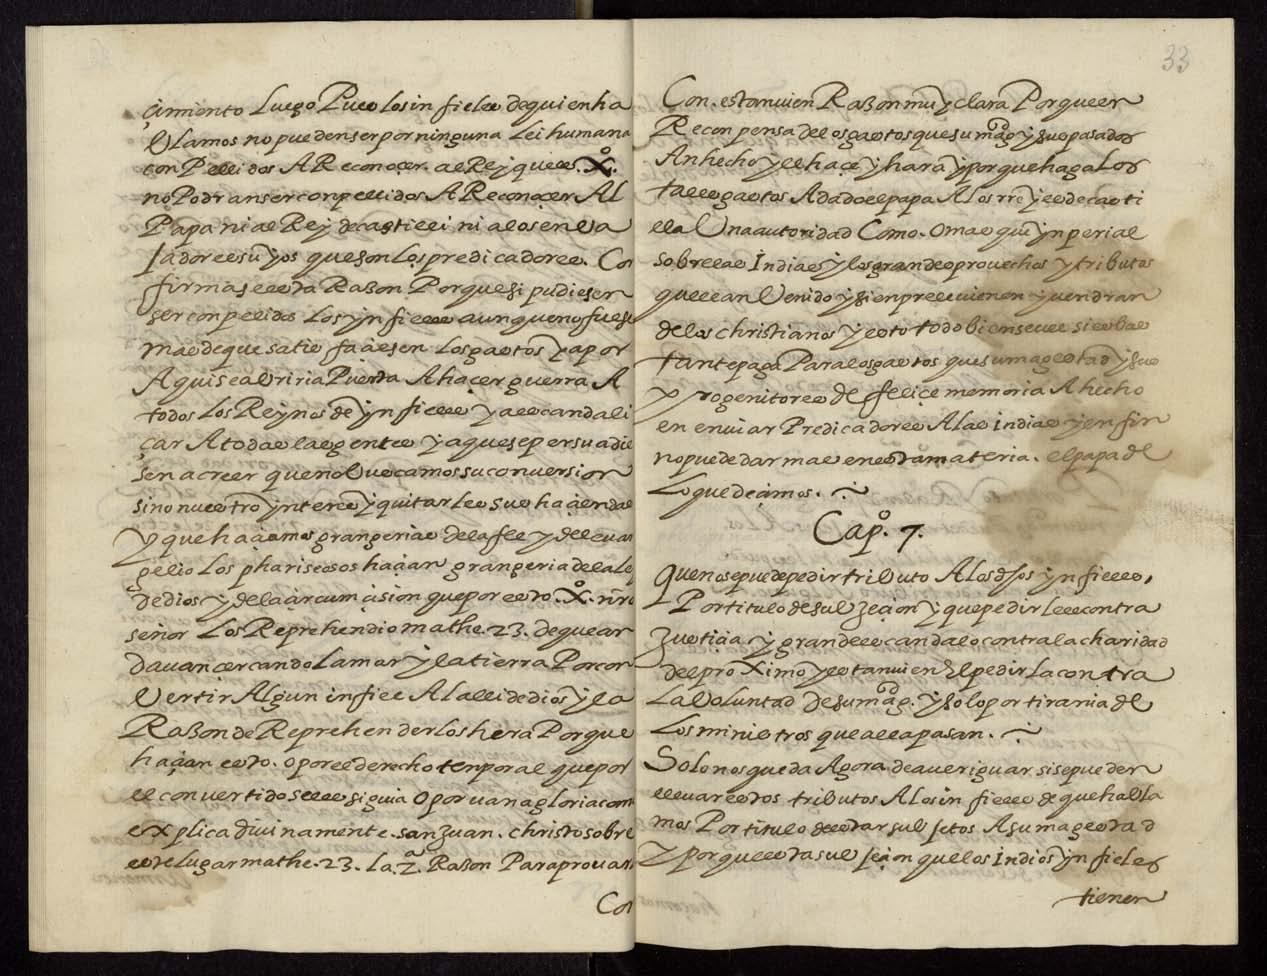 çimiento luego Pues los infieles de quien ha
blamos no pueden ser por ninguna lei humana
conpellidos A Reconoçer. al Rey que es. Xº.
no Podran ser conpellidos A Reconoçer Al
Papa ni al Rey de castilla ni a los enba
jadores suyos que son los predicadores. Con
firmase esta Razon Porque si pudiesen
ser conpelidos los ynfieles aunque no fuese
mas de que satisfaçiesen los gastos ya por
Aqui se abriria Puerta A haçer guerra A
todos los Reynos de ynfieles y a escandali
çar A todas las gentes y a que se persuadie
sen a creer que no buscamos su conversion
sino nuestro ynteres y quitarles sus haçiendas
y que haçiamos grangerias de la fee y del evan
gelio los phariseosos haçian grangeria de la ley
de dios y de la çircumçision que por esto. Xº. nrõ
señor los Reprehendio mathe. 23. de que an
davan cercando la mar y la tierra Por con
vertir Algun infiel A la lei de dios y la
Razon de Reprehenderlos hera Porque
haçian esto. o por el derecho tenporal que por
el convertido se les siguia o por vana gloria como
explica divinamente. san Juan. christos sobre
este lugar mathe. 23. la. 2ª. Razon Para provar
Con
33
Con. esta muien Razon muy clara Porque en
Reconpensa de los gastos que su magd y sus pasados
An hecho y el haçe y hara y porque haga Los
tales gastos A dado el papa A los rrs yes de casti
lla Una autoridad Como. o mas que ynperial
sobre las Indias y los grandes provechos y tributos
que les an Venido y sienpre les vienen y vendran
de los christianos y esto todo bien se vee si es bas
tante paga Para los gastos que su magestad y sus
progenitores de feliçe memoria A hecho
en enviar Predicadores A las indias y en fin
no puede dar mas en esta materia. el papa de
lo que deçimos. ~
Capº. 7.
Que no se puede pedir tributo A los dhos ynfieles,
Por titulo de subjeçion y que pedirles es contra
Justiçia y grande escandalo contra la charidad
del proximo y estanvien el pedirla contra
la voluntad de su magd. y solo por tirania de
los ministros que alla pasan. ~
Solo nos queda Agora de averiguar si se pueden
llevar estos tributos A los infieles de que habla
mos Por titulo de estar subjetos A su magestad
y porque esta subjeçion que los indios ynfieles
tienen